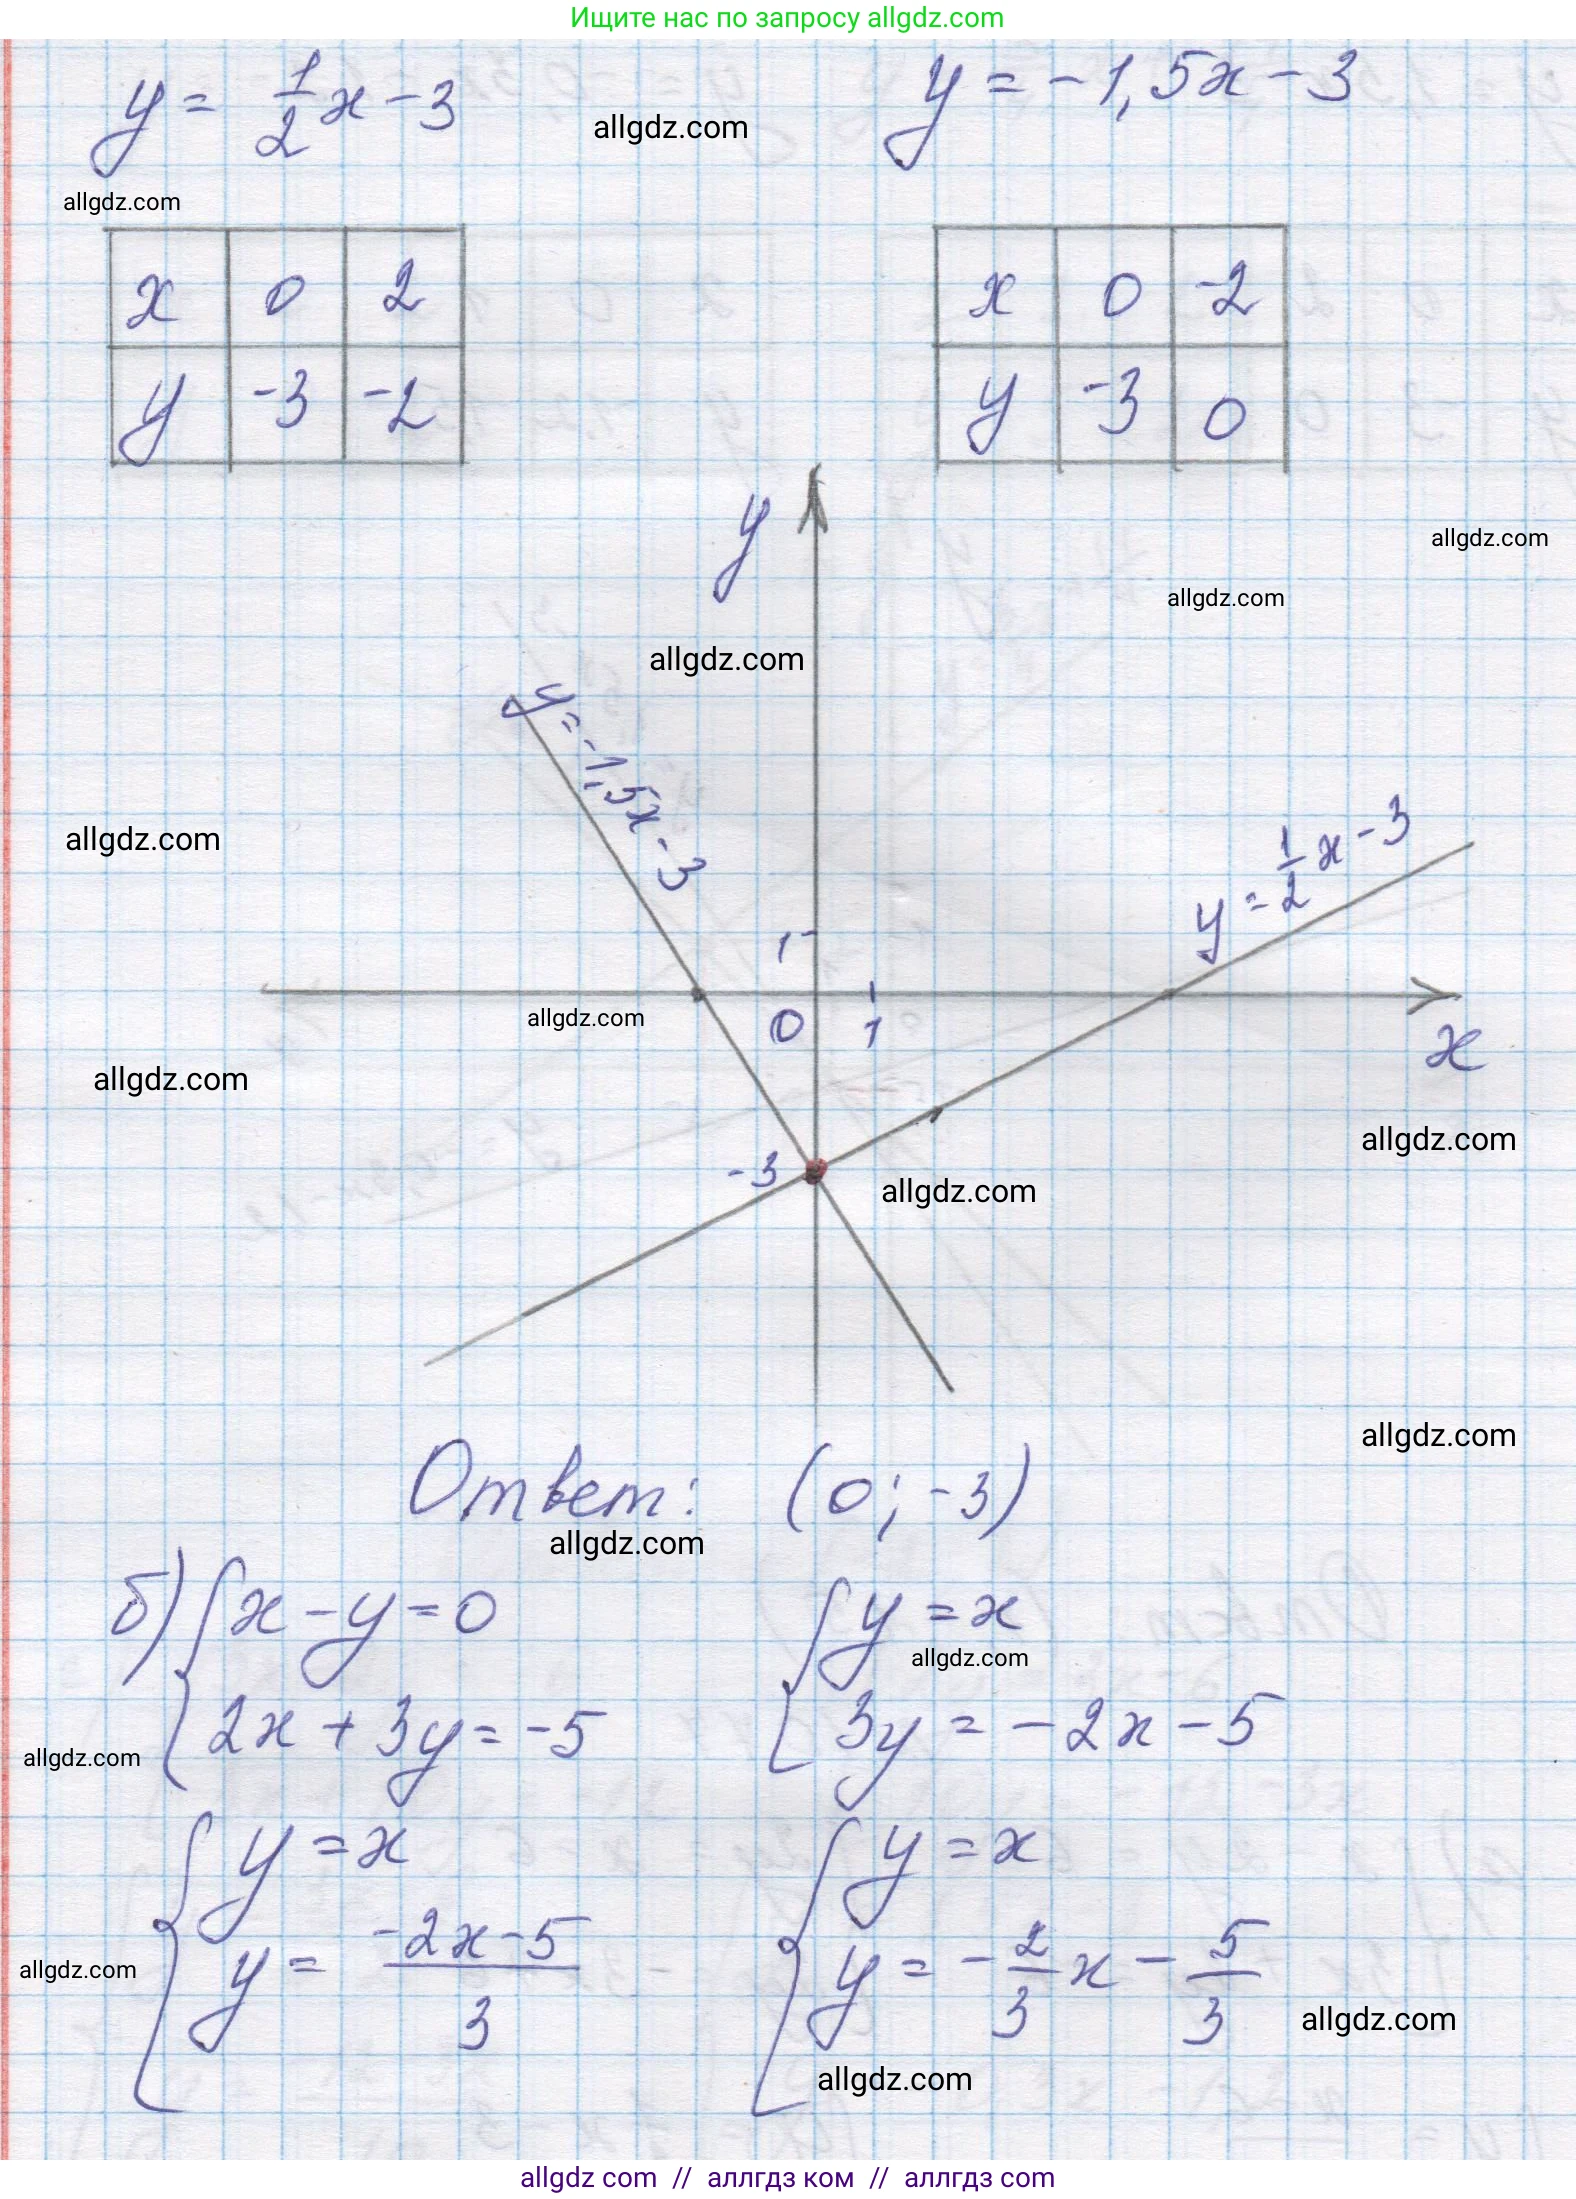 Ищите нас по запросу allgdz.com
y = 1/2 x - 3
y = -1,5x - 3
allgdz.com
allgdz.com
x 0 2
y -3 -2
x 0 -2
y -3 0
y
allgdz.com
allgdz.com
allgdz.com
y = -1,5x - 3
allgdz.com
y = 1/2 x - 3
1
0 1
x
allgdz.com
allgdz.com
allgdz.com
-3
allgdz.com
allgdz.com
Ответ: (0; -3)
allgdz.com
б) { x - y = 0
2x + 3y = -5
{ y = x
3y = -2x - 5
allgdz.com
allgdz.com
{ y = x
y = (-2x - 5)/3
{ y = x
y = - 2/3 x - 5/3
allgdz.com
allgdz.com
allgdz.com
allgdz com // аллгдз ком // аллгдз com